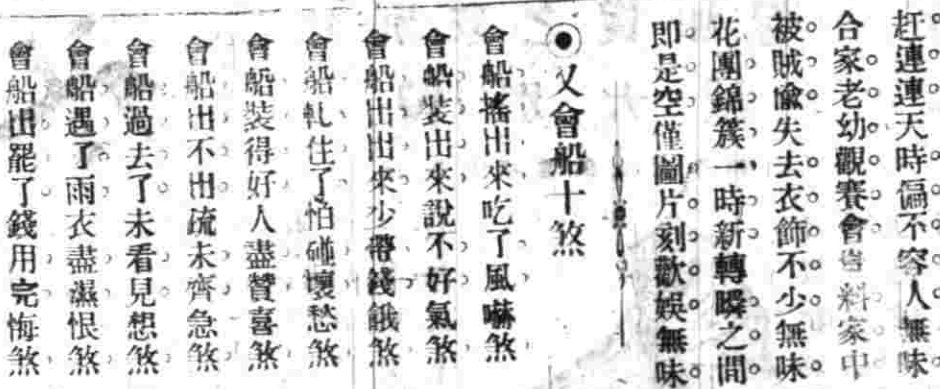 赶連連天時偏不容人無味
合家老幼觀賽會豈料家中
被賊偸失去衣飾不少無味
花團錦簇一時新轉瞬之間
即是空僅圖片刻歡娛無味
又會船十煞
會船搖出來吃了風嚇煞
會船裝出來說不好氣煞
會船出出來少帶錢餓煞
會船軋住了怕碰壞愁煞
會船裝得好人盡贊喜煞
會船出不出疏未齊急煞
會船過去了未看見想煞
會船遇了雨衣盡濕恨煞
會船出罷了錢用完悔煞